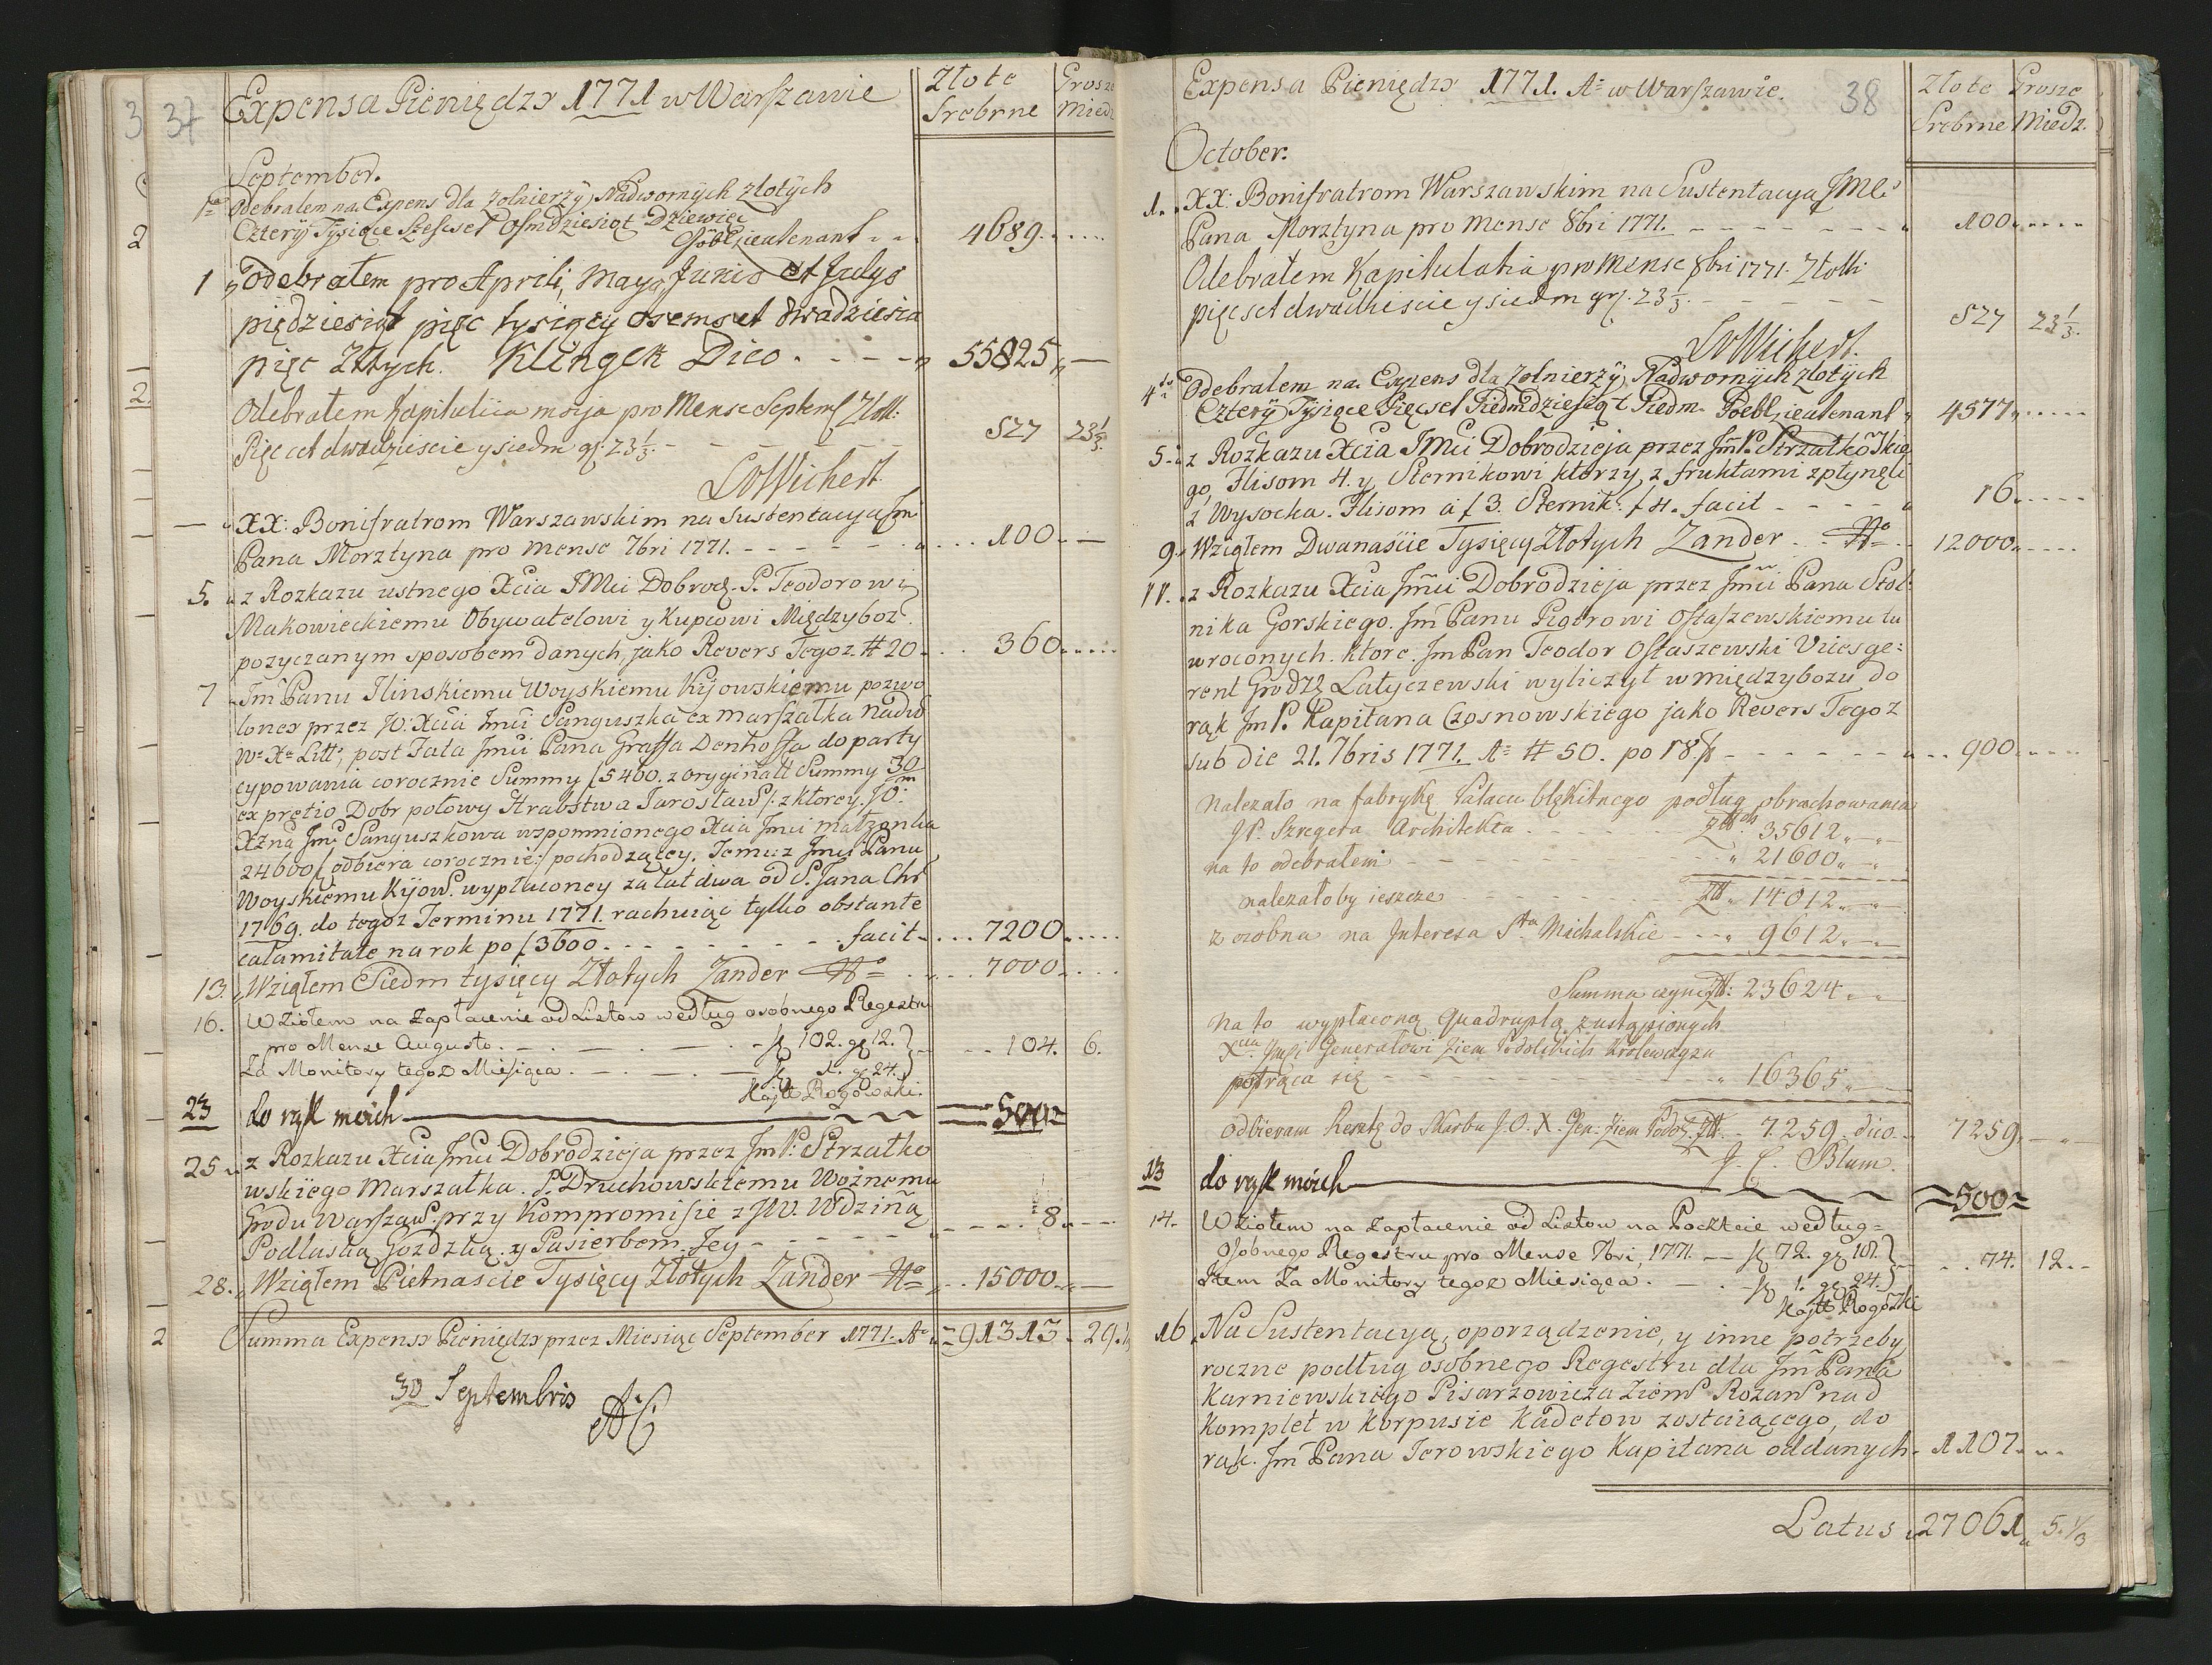 37
Expensa Pieniędzy 1771 w Warszawie
Złote Grosze
Srebrne Miedz
September.
1mo Odebralem na Expens dla Zolnierzÿ Nadwornÿch złotÿch
Czterÿ Tÿsiące Szescset Osmdziesiąt Dziewięc
Göbel ieutenant 4689
1 Odebrałem pro Aprili, Mayo, Junio et Julyo
pięдziesiąt pięc tysięcy osemset dwadziescia
pięc Złtych. Klingek Dico 55825
Odebrałem Kapitulica moija pro Mense Septemb Złott:
Pięcset dwadziescie y siedm gr 23 1/3 527 23 1/3
LvWichert
XX: Bonifratrom Warszawskim na Sustentacyą Jm
Pana Morztyna pro mense 7bri 1771. 100
5. z Rozkazu ustnego Xcia JMci Dobrodz. P. Teodorowi
Makowieckiemu Obywatelowi y Kupcowi Międzyboz.
pozyczanym sposobem danych, jako Revers Tegoz # 20 360
7 Jm Panu Ilinskiemu Woyskiemu Kÿowskiemu pozwo
loney przez JO. Xcia Jmci Sanguszka ex marszałka nadw
Wo Xo Litto, post Fata Jmci Pana Graffa Denhoffa do party
cypowania corocznie Summy f 5400. z oryginall Summy 30/m
ex pretio Dobr połowy Hrabstwa Jarosław /: z ktorey JO:
Xżna Jmć Sanguszkowa wspomnionego Xcia Jmci małzonka
24600 f odbiera corocznie :/ pochodzącey. Temuz Jmci Panu
Woyskiemu Kÿow. wypłaconey za lat dwa od S. Jana Chr
1769. do tegoz Terminu 1771. rachuiąc tylko obstante
calamitate na rok po f 3600. facit 7200
13. Wziąłem Siedm tysięcy Złotych Zander 7000
16. Wziołem na Zapłacenie od Listow według osobnego Regestru
pro Mense Augusto. f 102. gr 12. 104. 6.
Za Monitory tegoz Miesiąca. f 1. gr 24.
Kajtt Rogowski.
23 do rąk moich 500
25 z Rozkazu Xcia Jmci Dobrodzieja przez Jm P. Strzałko
wskiego Marszałka. P. Druchowskiemu Woznemu
Grodu Warszaw. przy Kompromisie z JW. Wdziną
Podluską Gozdzką. y Pasierbem Jey 8
28. Wziąłem Pietnascie Tysięcy Złotych Zander 15000
Summa Expensy Pieniędzy przez Miesiąc September 1771. Ao 91313. 29. 1/3
30 Septembris
AC
Expensa Pieniędzy 1771. Ao w Warszawie. 38
Złote Grosze
Srebrne Miedz.
October.
1. XX: Bonifratrom Warszawskim na Sustentacyą JMci
Pana Morztyna pro mense 8bri 1771. 100
Odebrałem Kapitulatia pro Mense 8bri 1771. Złott:
pięcset dwadziescie y siedm gr. 23 1/3. 527 23 1/3.
LvWichert.
4to Odebralem na Expens dla Zolnierzÿ Nadwornÿch złotÿch
Czterÿ Tÿsiące Pięcset Siedmdziesiąt Siedm. Goebl, ieutenant 4577
5. z Rozkazu Xcia JMci Dobrodzieja przez Jm P. Strzałkowskie
go, Flisom 4. y Sternikowi ktorzy z fruktami zpłynęli
z Wysocka. Flisom á f 3. Sternik: f 4. facit 16
9. Wziąłem Dwanascie Tysięcy Złotych Zander 12000
11. z Rozkazu Xcia Jmci Dobrodzieja przez Jmci Pana Stol:
nika Gorskiego. Jm Panu Piotrowi Ostaszewskiemu tu
wroconych. ktore. Jm Pan Teodor Ostaszewski Vicesge:
rent Grodz. Latyczewski wyliczył w międzybozu do
rąk Jm P. Kapitana Czosnowskiego jako Revers Tegoz
sub die 21. 7bris 1771. Ao # 50. po 18 f 900
Nalezało na fabrykę Pałacu błękitnego podług obrachowania
JP. Szregera Architekta złtch 35612
na to odebrałem 21600
nalezałoby ieszcze złt 14012
z osobna na Interesa Sta Michalskie 9612
Summa czyni złt: 23624
Na to wypłaconą Quadruplą zustąpionych
Xciu Jmci Generałowi Ziem Podolskich Krolewszczn
potrąca się 16365
Odbieram Resztę do Skarbu J.O.X. Gen: Ziem Podol: złt. 7259 dico. 7259
J. C. Blum.
13 do rąk moich 500
14. Wziołem na zapłacenie od Listow na Poczcie według
osobnego Regestru pro Mense 7bri, 1771. f 72. gr 18. 74. 12.
Item Za Monitory tegoz Miesiąca. f 1. gr 24.
Kajtt Rogozki
16. Na Sustentacyą, oporządzenie, y inne potrzeby
roczne podług osobnego Regestru dla Jm Pana
Karniewskiego Pisarzowicza Ziem Rozan nad
komplet w Korpusie Kadetow zostaiącego, do
rąk. Jm Pana Jerowskiego Kapitana oddanych 1107
Latus 27061 5. 1/3